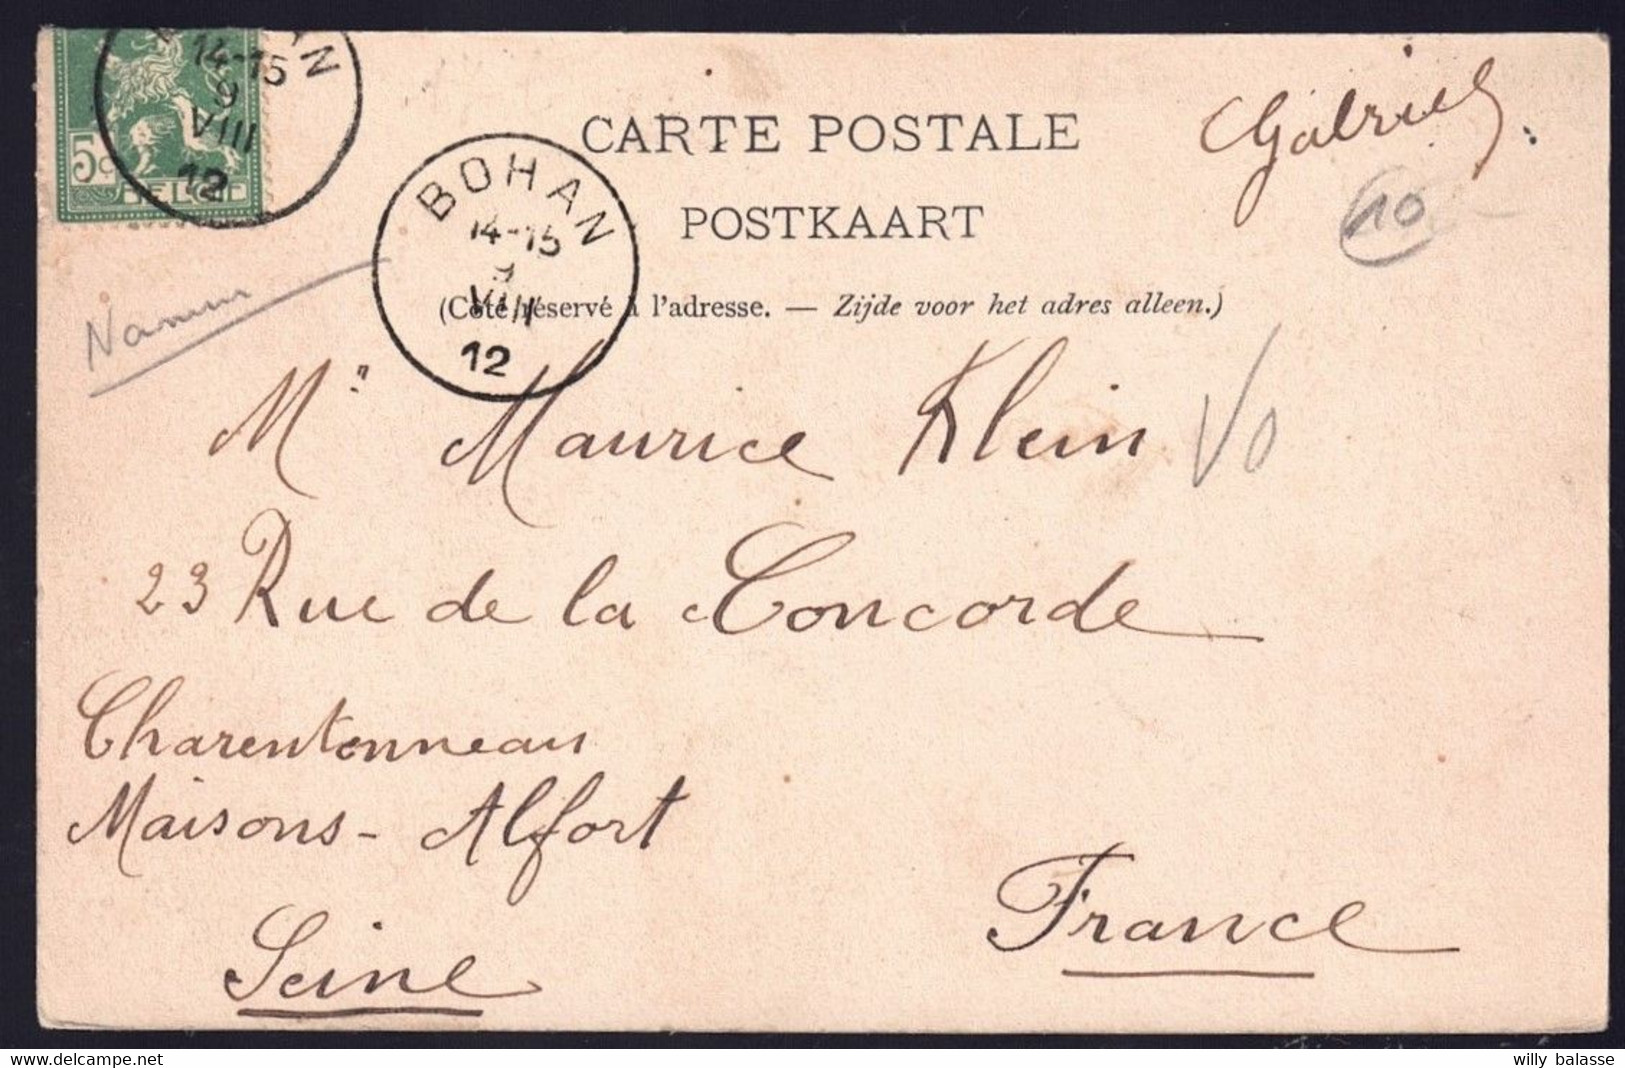 14-15
9
VIII
12
5c
BOHAN
14-15
9
VIII
12
CARTE POSTALE
POSTKAART
(Côté réservé à l'adresse. — Zijde voor het adres alleen.)
Gabriel
10
Namur
Mr Maurice Klein
23 Rue de la Concorde
Charentonneau
Maisons-Alfort
Seine
France
willy balasse